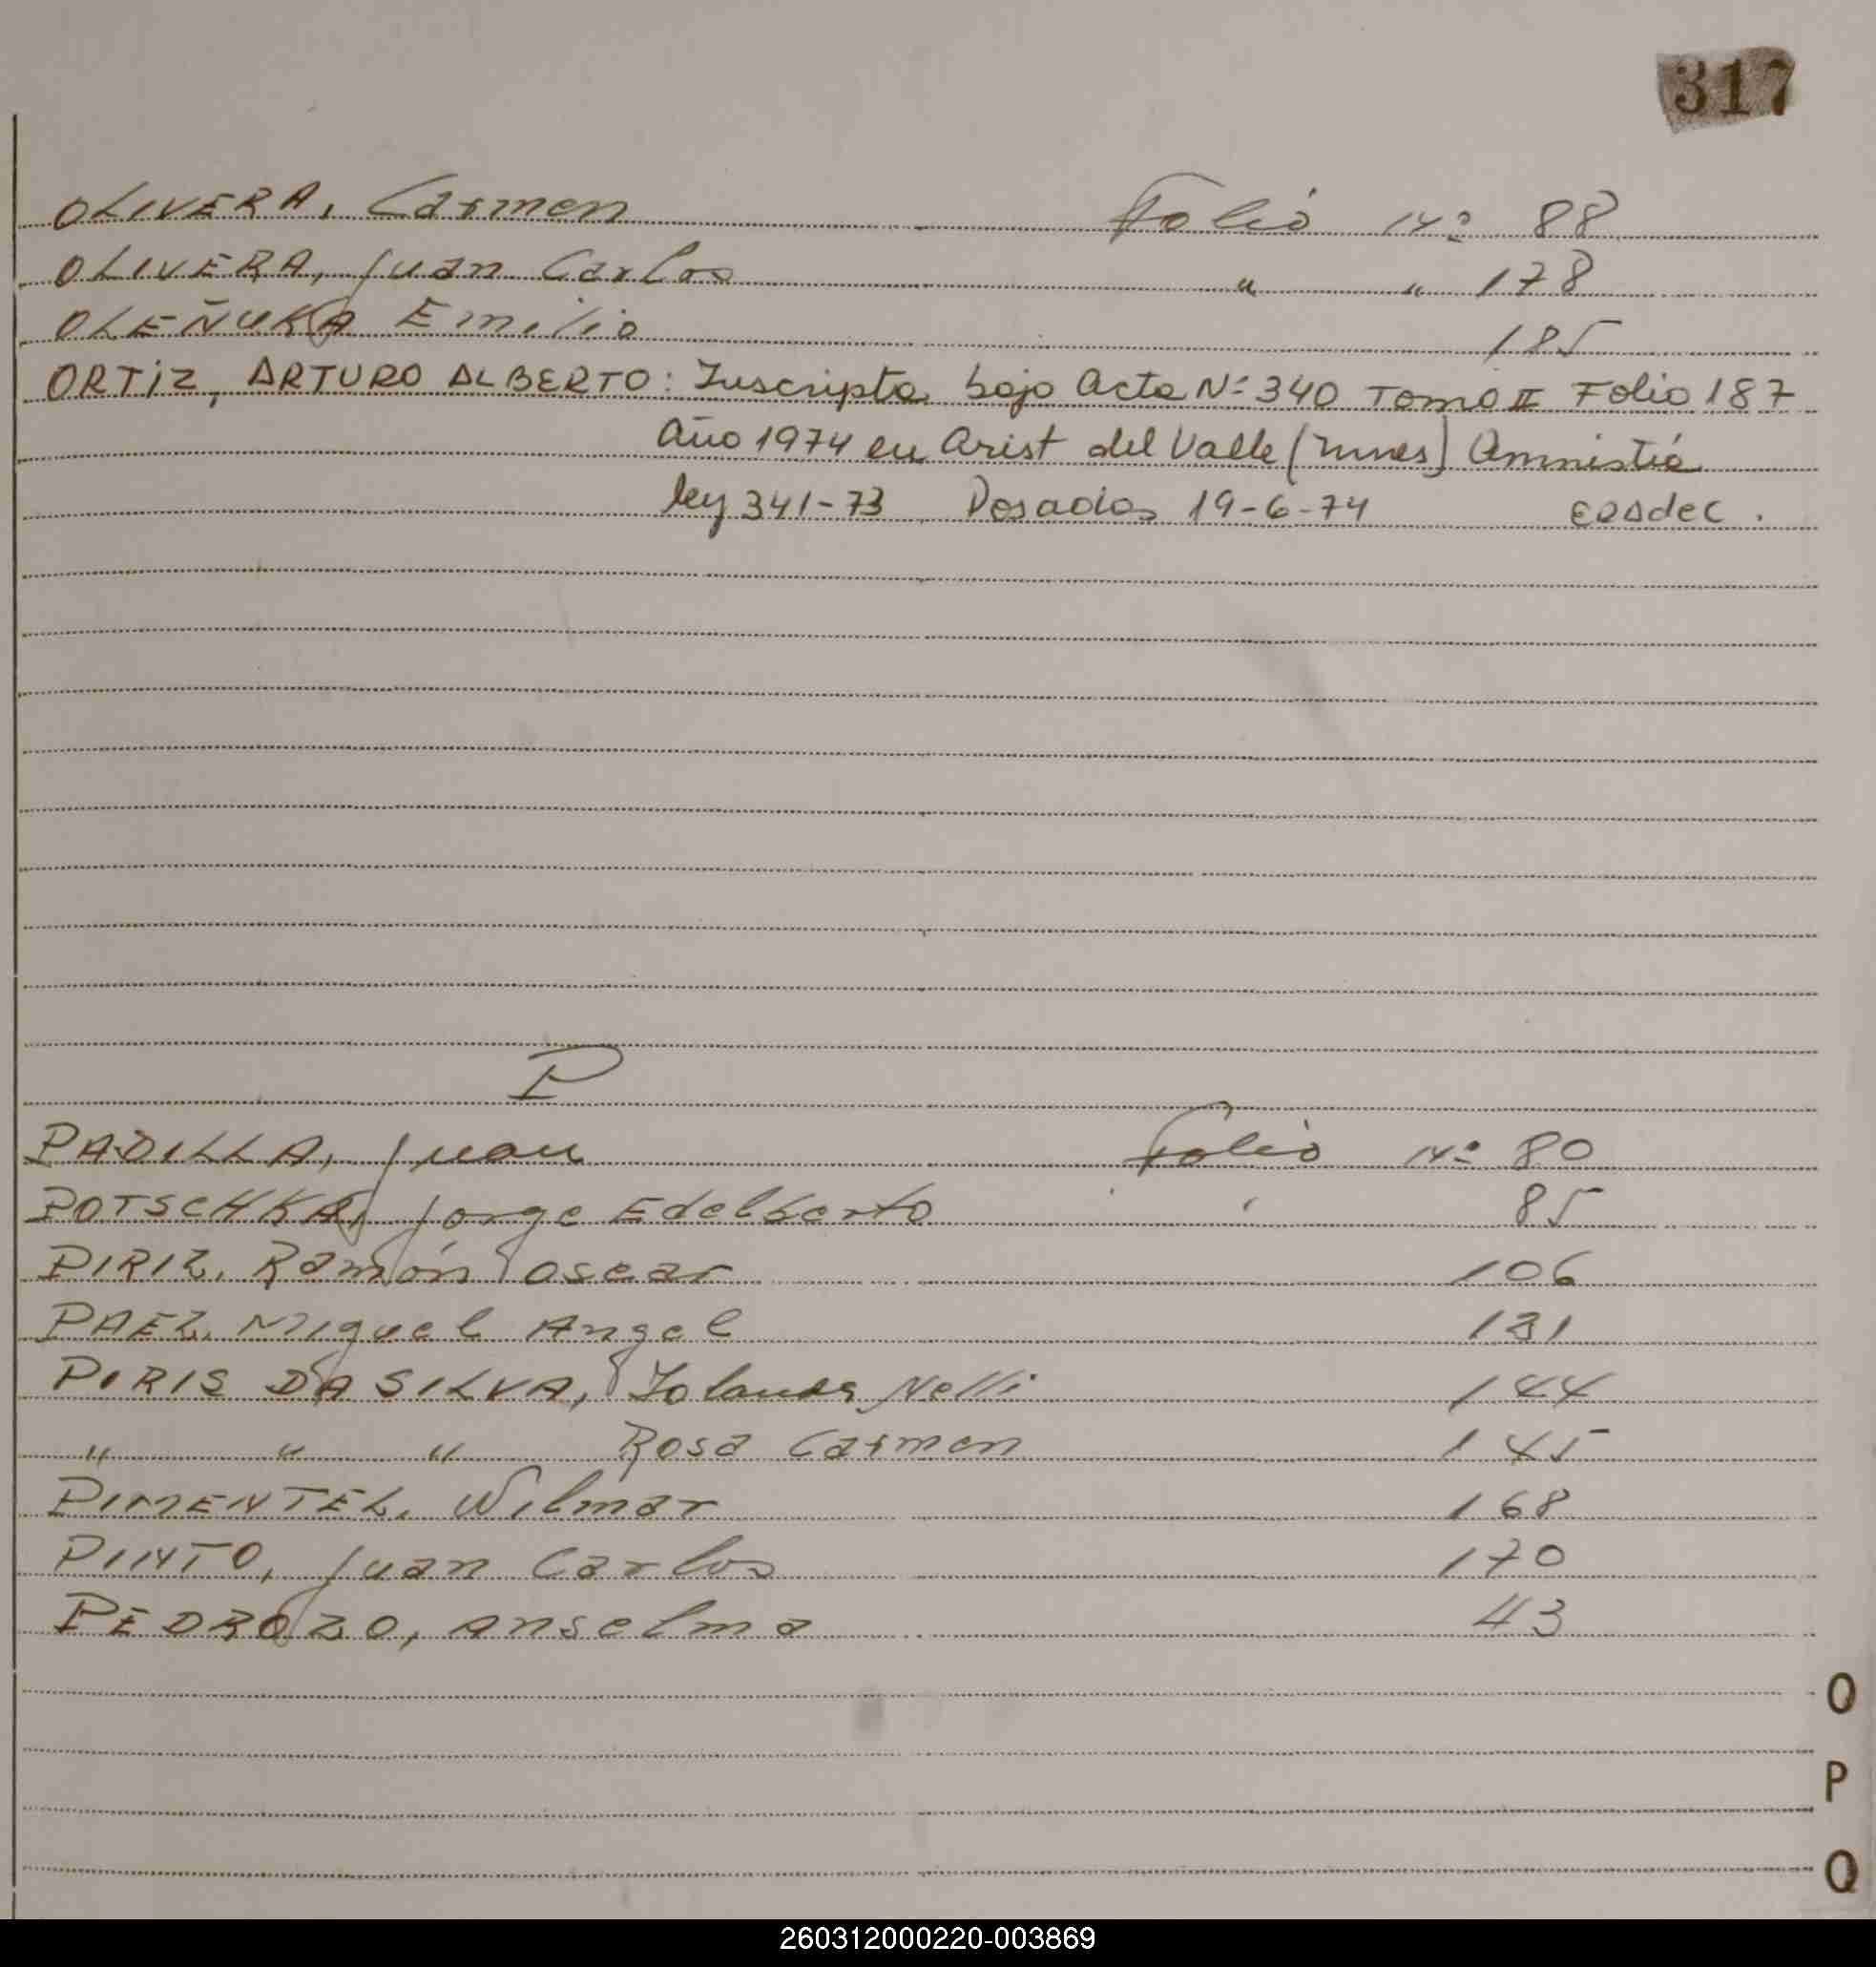 317
OLIVERA, Carmen Folio Nº 88
OLIVERA, Juan Carlos " " 178
OLEÑUKA Emilio 185
ORTIZ, ARTURO ALBERTO: Inscripto bajo Acta Nº 340 Tomo II Folio 187
Año 1974 en Arist del Valle (Mnes) Amnistía
ley 341-73 Posadas 19-6-74
P
PADILLA, Juan Folio Nº 80
POTSCHKA, Jorge Edelberto 85
PIRIZ, Ramón Oscar 106
PAEZ, Miguel Angel 131
PIRIS DA SILVA, Yolanda Nelli 144
" " " Rosa Carmen 145
PIMENTEL, Wilmar 168
PINTO, Juan Carlos 170
PEDROZO, Anselma 43
O
P
Q
260312000220-003869